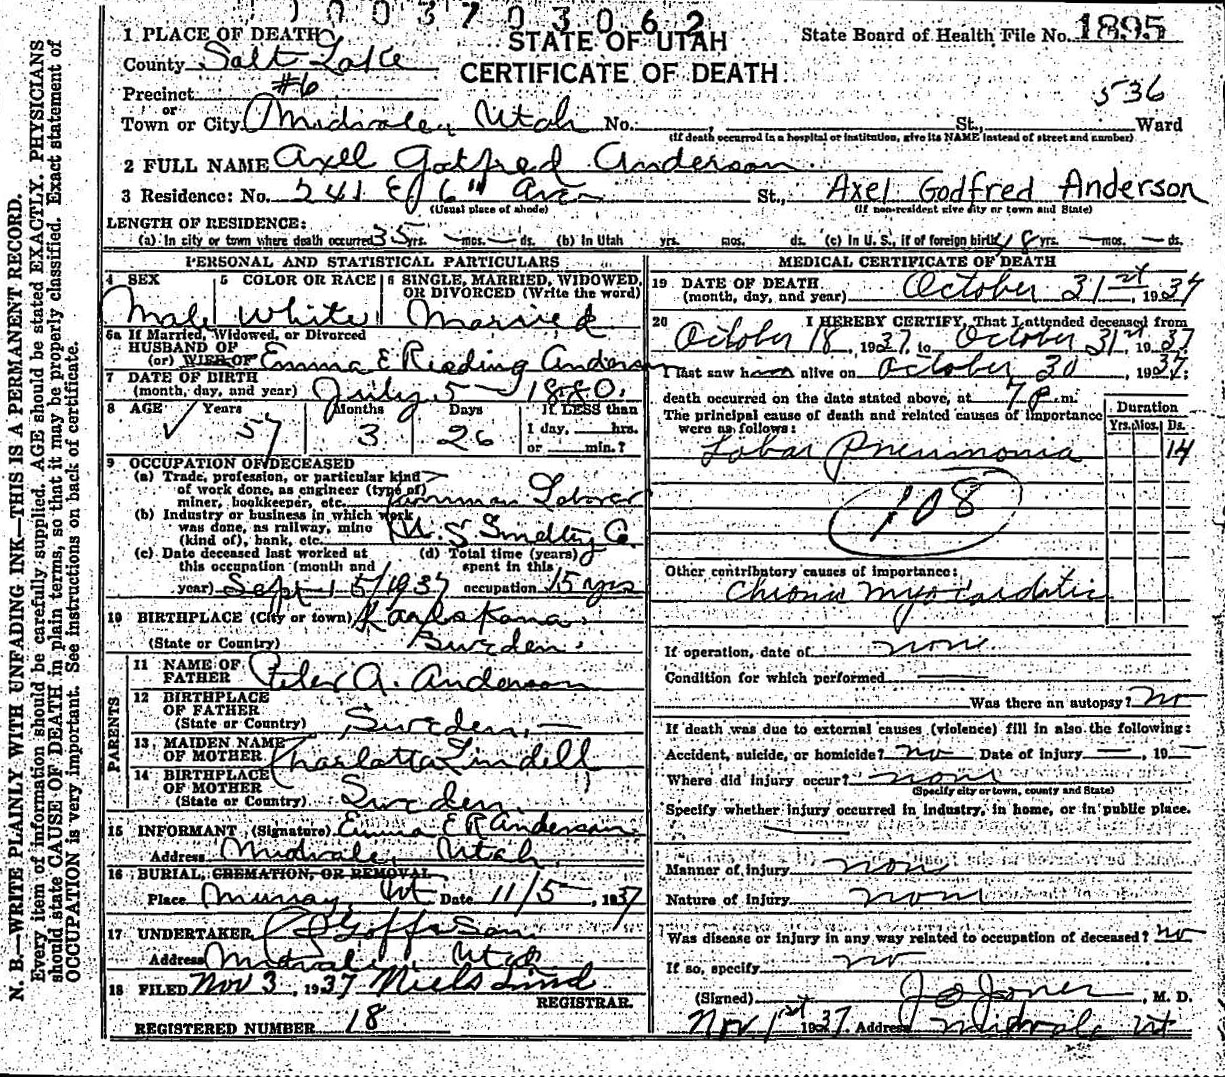 1003703062
1 PLACE OF DEATH
STATE OF UTAH
State Board of Health File No. 1895
County Salt Lake
CERTIFICATE OF DEATH
Precinct #6
536
or
Town or City Midvale, Utah No. St., Ward
(If death occurred in a hospital or institution, give its NAME instead of street and number)
2 FULL NAME Axell Gotfred Anderson
3 Residence: No. 241 E 6" Ave St., Axel Godfred Anderson
(Usual place of abode) (If non-resident give city or town and State)
LENGTH OF RESIDENCE:
(a) In city or town where death occurred 35 yrs. — mos. — ds. (b) In Utah yrs. mos. ds. (c) In U. S., if of foreign birth yrs. — mos. — ds.
PERSONAL AND STATISTICAL PARTICULARS
4 SEX 5 COLOR OR RACE 6 SINGLE, MARRIED, WIDOWED, OR DIVORCED (Write the word)
Male White Married
6a If Married, Widowed, or Divorced
HUSBAND OF
(or) WIFE OF Emma E Reading Anderson
7 DATE OF BIRTH
(month, day, and year) July 5 - 1880.
8 AGE Years Months Days If LESS than
✓ 57 3 26 1 day, hrs.
or min.?
9 OCCUPATION OF DECEASED
(a) Trade, profession, or particular kind
of work done, as engineer (type of)
miner, bookkeeper, etc. Common Laborer
(b) Industry or business in which work
was done, as railway, mine
(kind of), bank, etc. U. S. Smelting Co
(c) Date deceased last worked at (d) Total time (years)
this occupation (month and spent in this
year) Sept 15/1937 occupation 15 yrs
10 BIRTHPLACE (City or town) Karlskona.
(State or Country) Sweden.
PARENTS
11 NAME OF
FATHER Peter A. Anderson
12 BIRTHPLACE
OF FATHER
(State or Country) Sweden. —
13 MAIDEN NAME
OF MOTHER Charlotta Lindell
14 BIRTHPLACE
OF MOTHER
(State or Country) Sweden.
15 INFORMANT (Signature) Emma E R Anderson
Address Midvale, Utah.
16 BURIAL, CREMATION, OR REMOVAL
Place Murray, Ut Date 11/5, 1937
17 UNDERTAKER Goff & Son
Address Midvale, Utah
18 FILED Nov 3, 1937 Niels Lind
REGISTRAR.
REGISTERED NUMBER 18
MEDICAL CERTIFICATE OF DEATH
19 DATE OF DEATH
(month, day, and year) October 31st, 1937
20 I HEREBY CERTIFY, That I attended deceased from
October 18, 1937, to October 31st, 1937.
I last saw him alive on October 30, 1937;
death occurred on the date stated above, at 7 P. m.
The principal cause of death and related causes of importance
were as follows:
Duration
Yrs. Mos. Ds.
Lobar Pneumonia 14
108
Other contributory causes of importance:
Chronic Myocarditis
If operation, date of none
Condition for which performed —
Was there an autopsy? No
If death was due to external causes (violence) fill in also the following:
Accident, suicide, or homicide? no Date of injury —, 19—
Where did injury occur? none
(Specify city or town, county and State)
Specify whether injury occurred in industry, in home, or in public place.
Manner of injury none
Nature of injury none
Was disease or injury in any way related to occupation of deceased? no
If so, specify no
(Signed) J O Jones, M. D.
Nov. 1st 1937. Address Midvale Ut
N. B.—WRITE PLAINLY WITH UNFADING INK—THIS IS A PERMANENT RECORD.
Every item of information should be carefully supplied. AGE should be stated EXACTLY. PHYSICIANS
should state CAUSE OF DEATH in plain terms, so that it may be properly classified. Exact statement of
OCCUPATION is very important. See instructions on back of certificate.